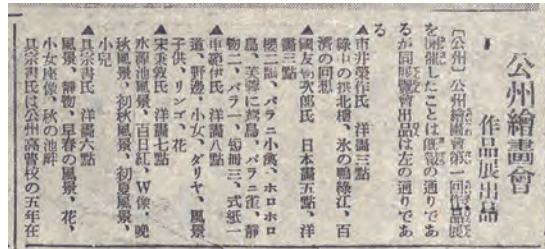 公州繪畫會
作品展出品
〔公州〕公州繪畫會第一回作品展
を開催したことは既報の通りであ
るが同展覽會出品は左の通りであ
る
▲市井榮作氏　洋畵三點
綠中の拱北橋、氷の鴨綠江、百
濟の回想
▲國友 次郎氏　日本畵五點、洋
畵三點
櫻二 、バラニ小禽、ホロホロ
鳥、芙蓉に鴛鳥、バラニ雀、靜
物二、バラ一、 册三、式紙一
▲申 伊氏　洋畵八點
道、野邊、小女、ダリヤ、風景
子供、リンゴ、花
▲宋秉敦氏　洋畵七點
水源池風景、百日紅、W像、晚
秋風景、初秋風景、初夏風景、
小兒
▲具宗書氏　洋畵六點
風景、靜物、早春の風景、花、
小女座像、秋の池畔
具宗書氏は公州高普校の五年在